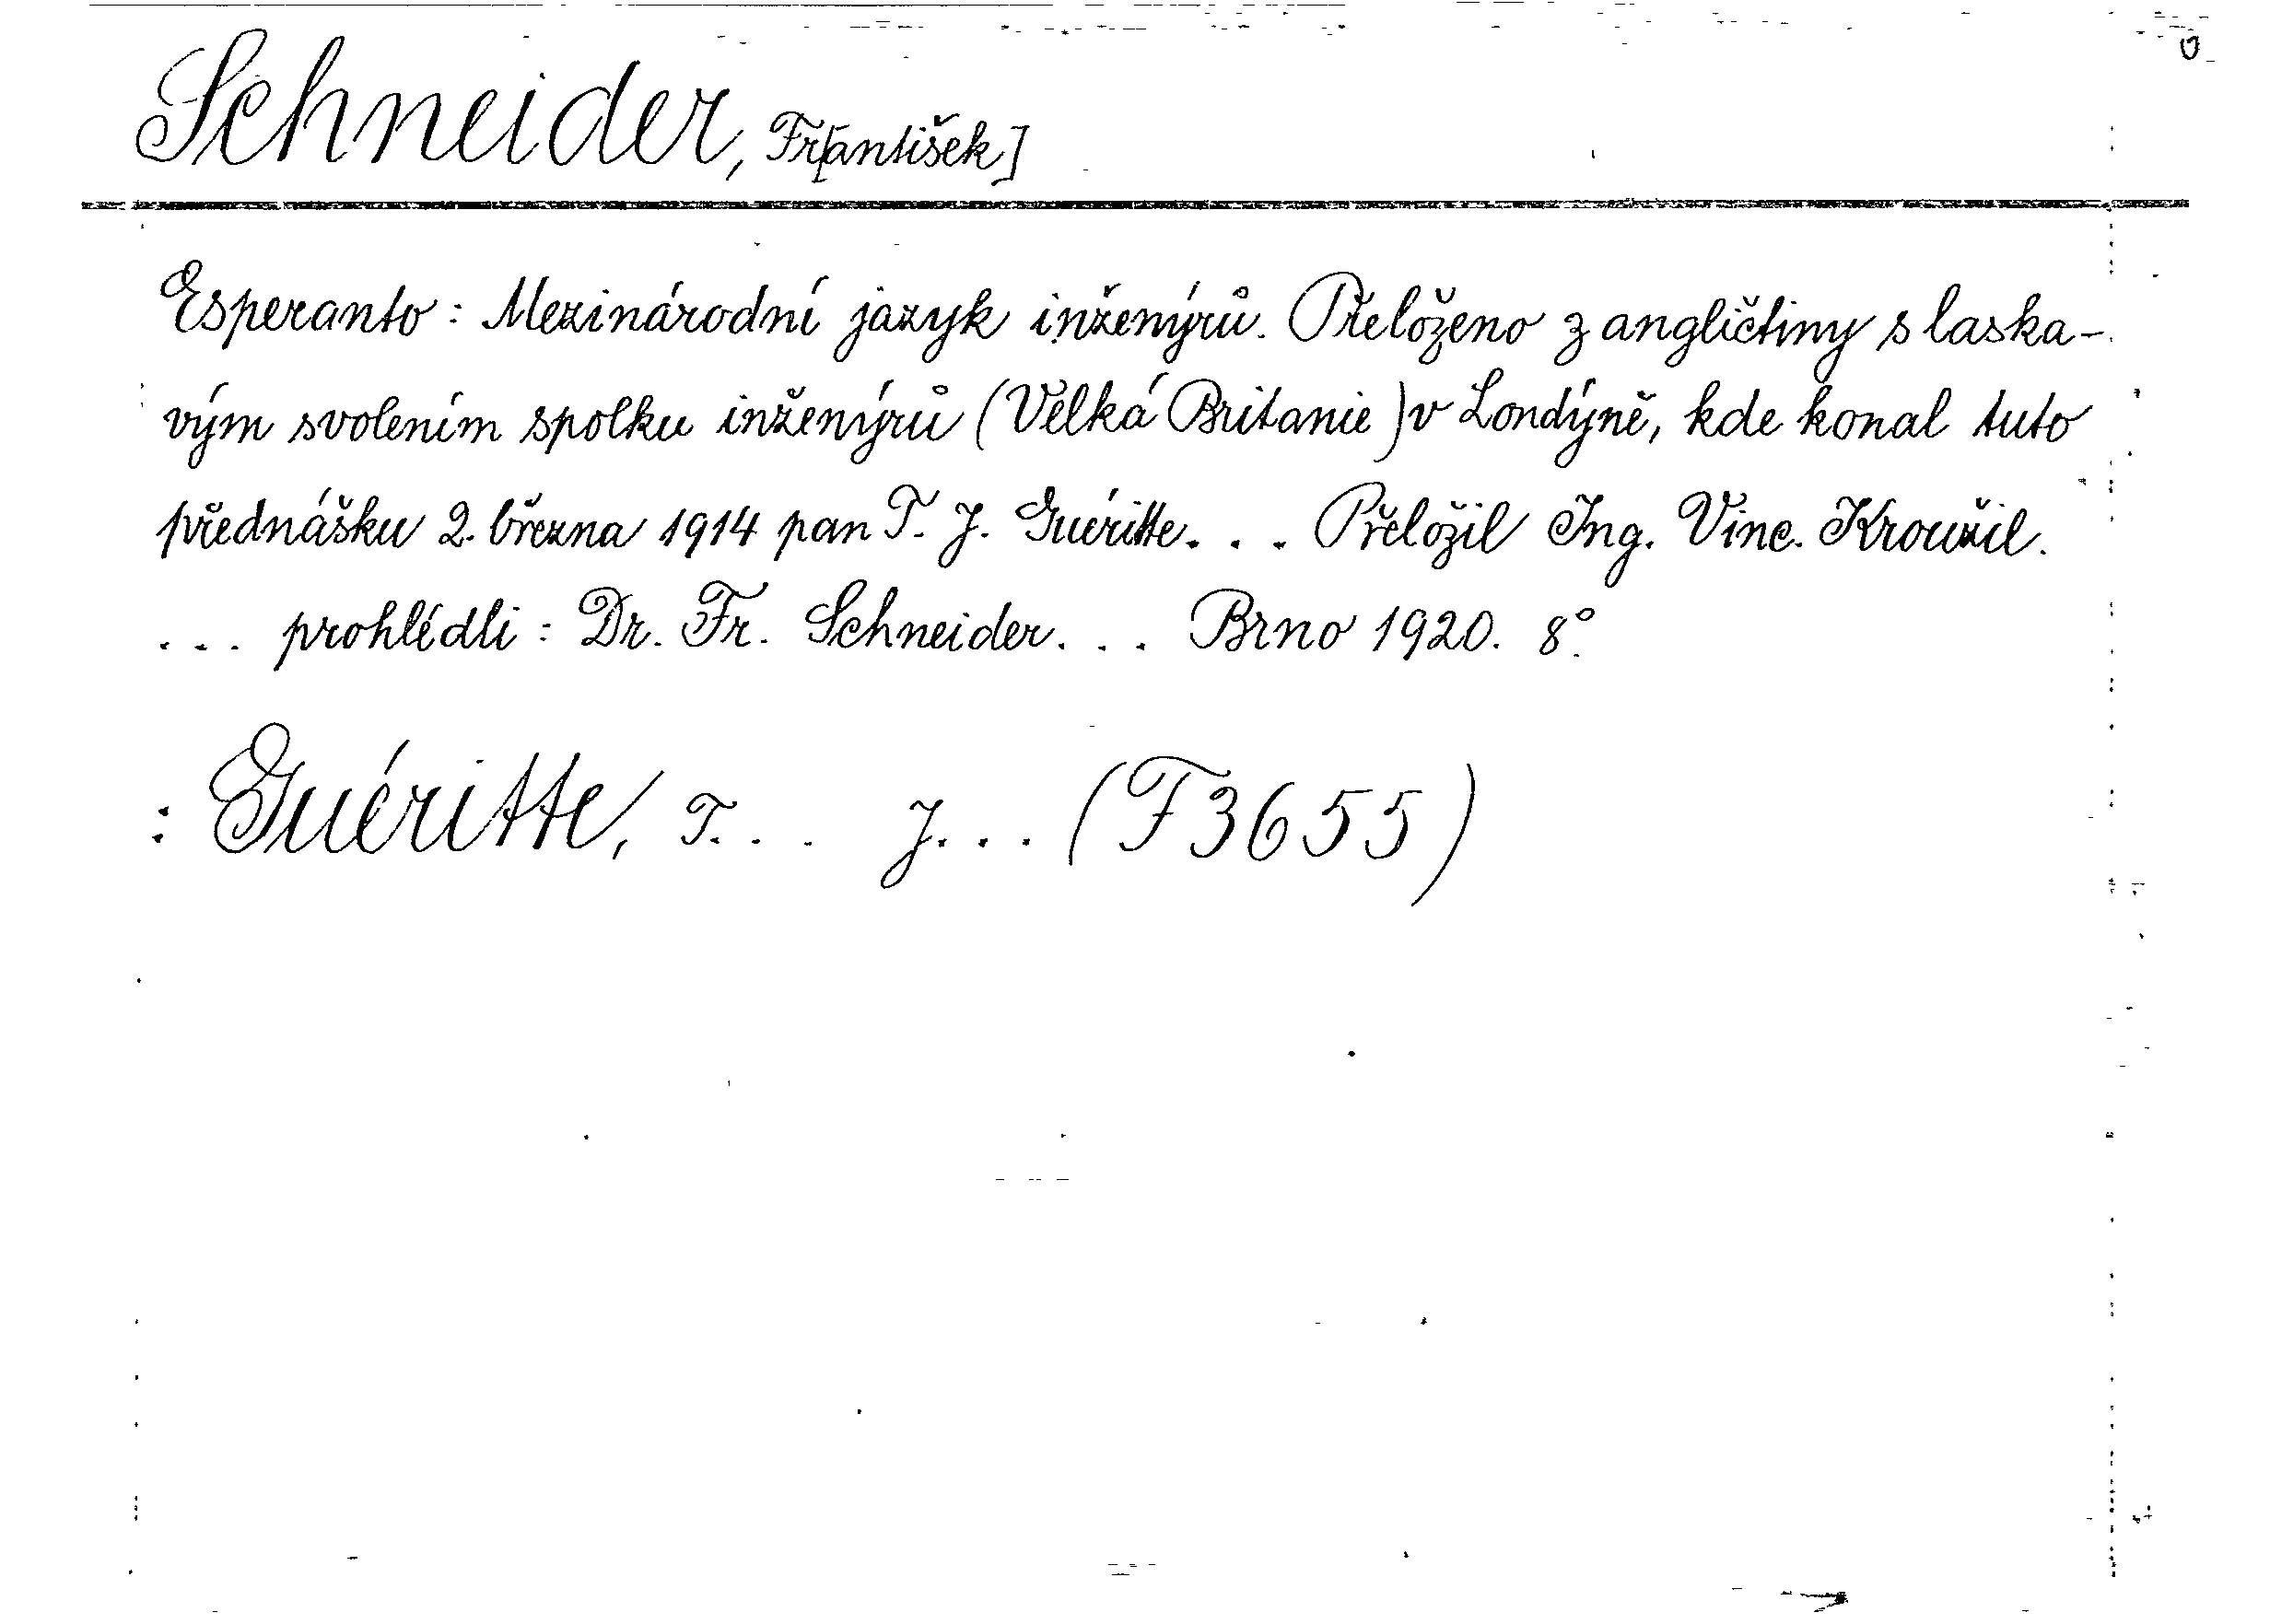 Schneider, Fr[antišek]
Esperanto: Mezinárodní jazyk inženýrů. Přeloženo z angličtiny s laska-
vým svolením spolku inženýrů (Velká Britanie) v Londýně, kde konal tuto
přednášku 2. března 1914 pan T. J. Guéritte... Přeložil Ing. Vinc. Kroužil.
... prohlédli: Dr. Fr. Schneider... Brno 1920. 8°.
: Guéritte, T... J... (F3655)